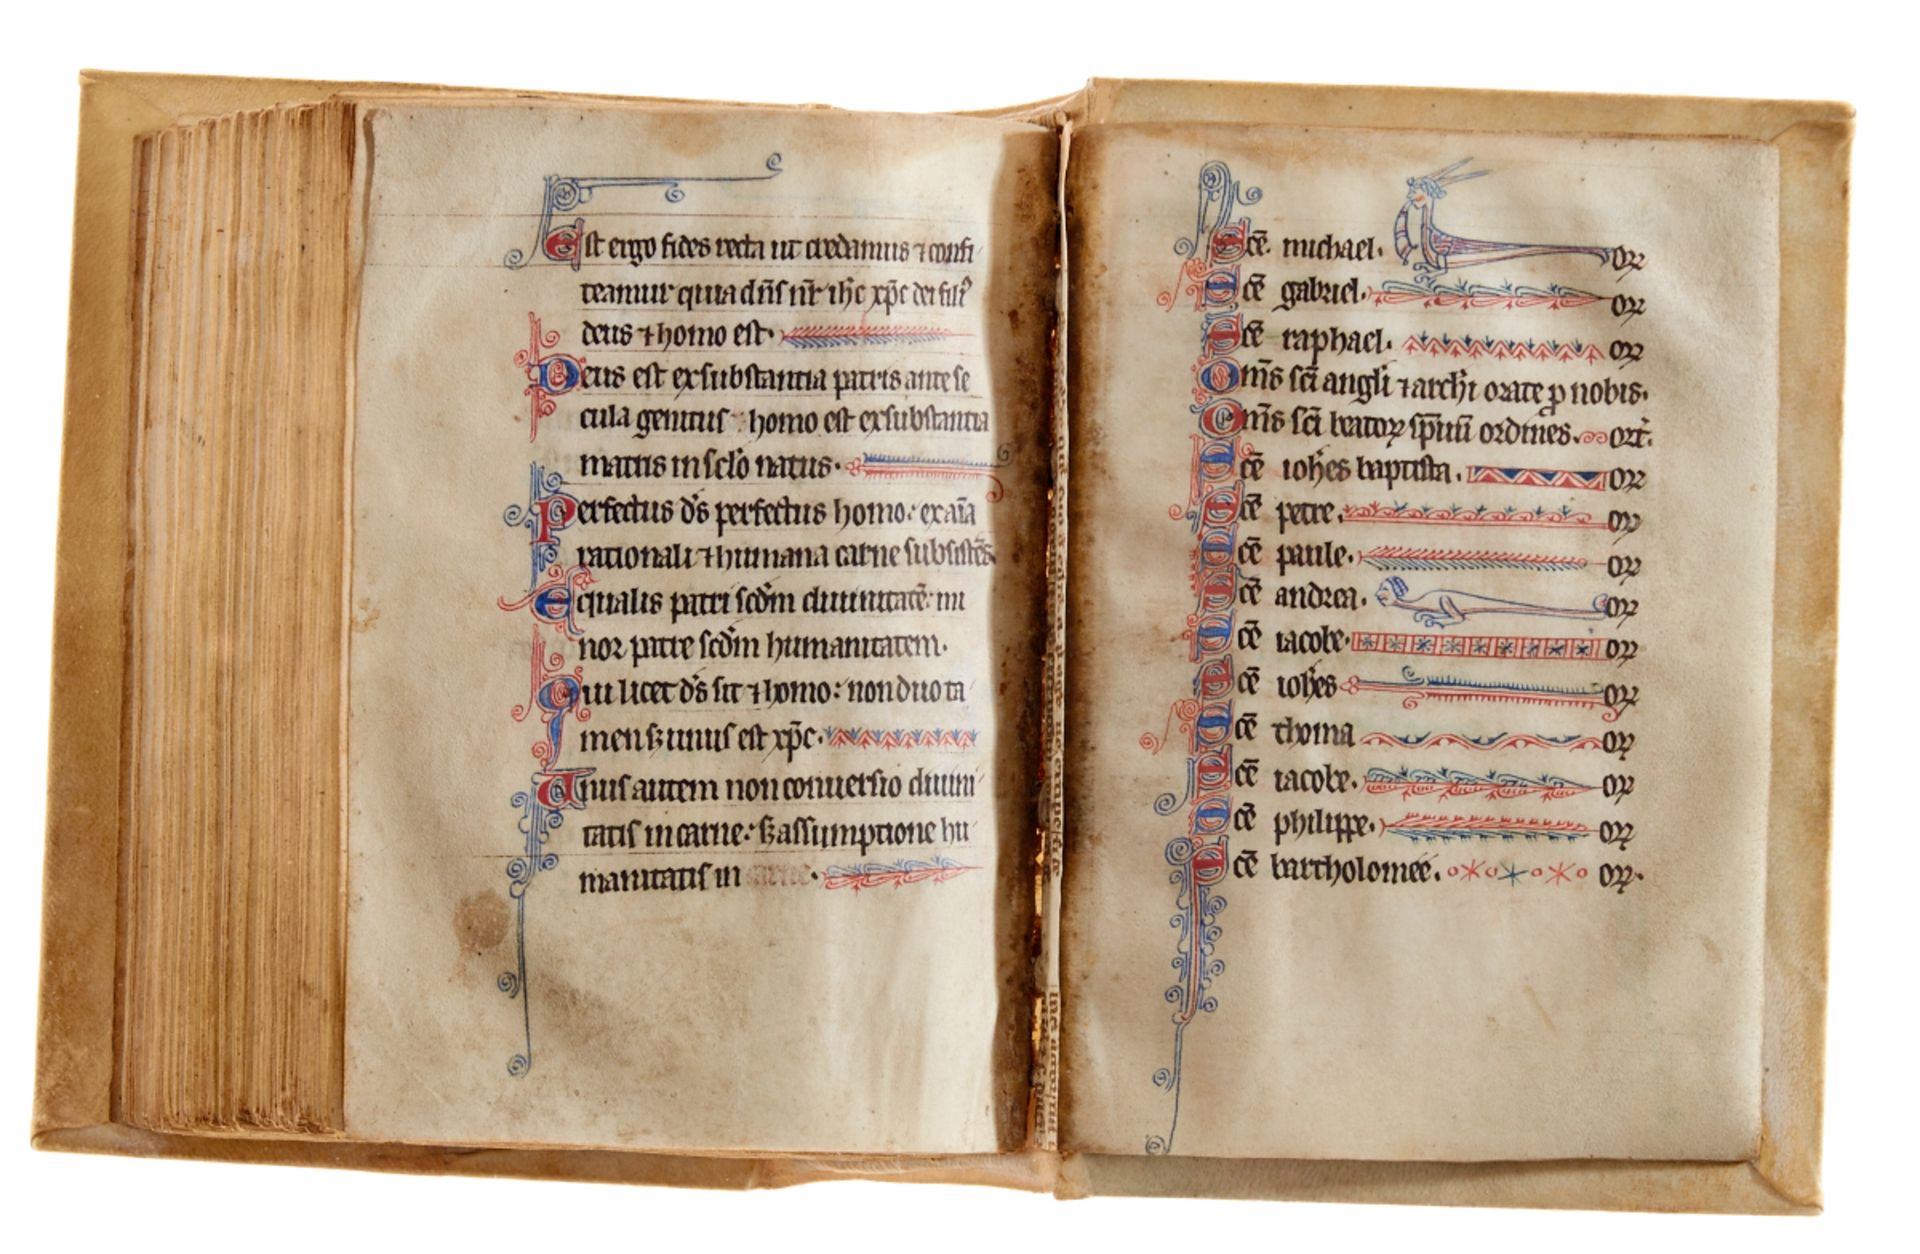 Est ergo fides recta ut credamus ⁊ confi
teamur quia dn̄s nr̄ ih̄c xp̄c dei fili᷒
deus ⁊ homo est.
Deus est exsubstantia patris ante se
cula genitus ⁊ homo est exsubstantia
matris in sclo natus.
Perfectus ds perfectus homo: ex aīa
rationali ⁊ humana carne subsistēs.
Equalis patri scdm diuinitatē: mi
nor patre scdm humanitatem.
Qui licet ds sit ⁊ homo: non duo ta
men sꝫ unus est xp̄c.
Unus autem non conuersio diuini
tatis in carne: sꝫ assumptione hu
manitatis in carne.
Scē. michael. oꝝ
Scē gabriel. oꝝ
Scē raphael. oꝝ
Om̄s sc̄i angl̄i ⁊ archi orate ꝓ nobis.
Om̄s sc̄i beatoꝝ sp̄uū ordines. oꝛt̄.
Scē ioh̄es baptista. oꝝ
Scē petre. oꝝ
Scē paule. oꝝ
Scē andrea. oꝝ
Scē iacobe. oꝝ
Scē ioh̄es oꝝ
Scē thoma oꝝ
Scē iacobe. oꝝ
Scē philippe. oꝝ
Scē bartholomee. oꝝ.